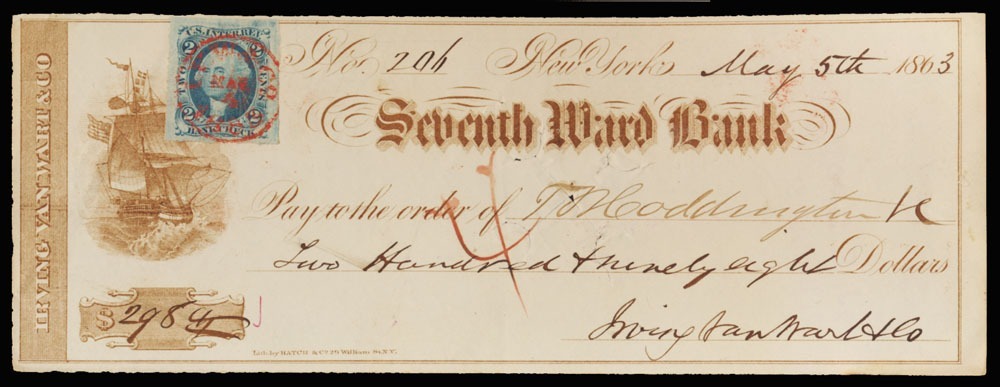 IRVING VAN WART & CO
U.S. INTER. REV.
2 2
TWO CENTS
2 2
BANK CHECK
No. 206 New York May 5th 1863
Seventh Ward Bank
Pay to the order of T. B. Coddington &c
Two Hundred & ninety eight Dollars
$ 298
Irving Van Wart & Co
Lith. by HATCH & Co. 29 William St. N.Y.